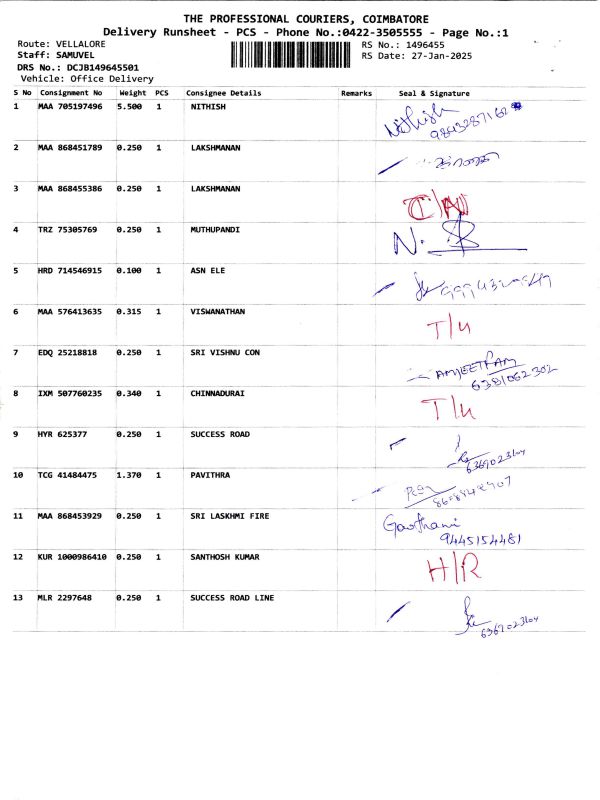 THE PROFESSIONAL COURIERS, COIMBATORE
Delivery Runsheet - PCS - Phone No.:0422-3505555 - Page No.:1
Route: VELLALORE
RS No.: 1496455
Staff: SAMUVEL
RS Date: 27-Jan-2025
DRS No.: DCJB149645501
Vehicle: Office Delivery
S No Consignment No Weight PCS Consignee Details Remarks Seal & Signature
1 MAA 705197496 5.500 1 NITHISH Nithish
2 MAA 868451789 0.250 1 LAKSHMANAN
3 MAA 868455386 0.250 1 LAKSHMANAN
4 TRZ 75305769 0.250 1 MUTHUPANDI N.
5 HRD 714546915 0.100 1 ASN ELE
6 MAA 576413635 0.315 1 VISWANATHAN T/u
7 EDQ 25218818 0.250 1 SRI VISHNU CON AMJEETRAM
6381062302
8 IXM 507760235 0.340 1 CHINNADURAI T/u
9 HYR 625377 0.250 1 SUCCESS ROAD
10 TCG 41484475 1.370 1 PAVITHRA
11 MAA 868453929 0.250 1 SRI LASKHMI FIRE Gowthami
9445154481
12 KUR 1000986410 0.250 1 SANTHOSH KUMAR H/R
13 MLR 2297648 0.250 1 SUCCESS ROAD LINE